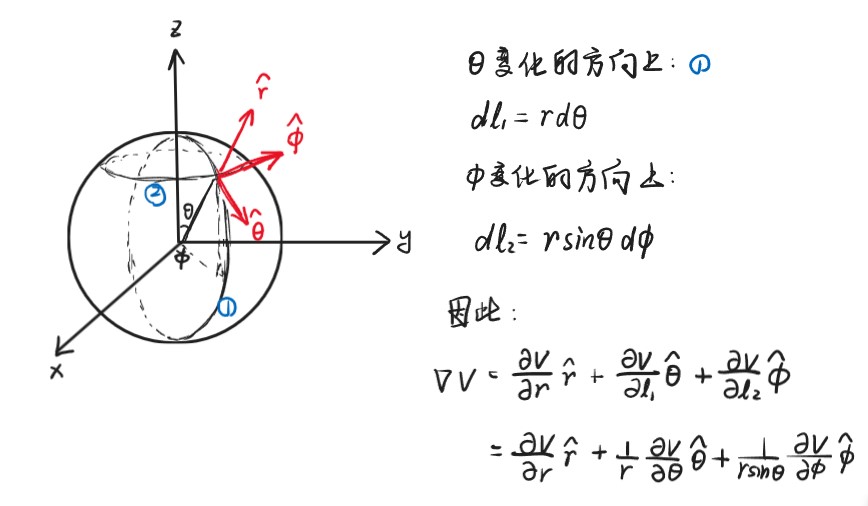 z
r̂
φ̂
②
θ
θ̂
y
φ
①
x
θ变化的方向上: ①
dl₁ = r dθ
φ变化的方向上:
dl₂ = r sinθ dφ
因此:
∇V = ∂V/∂r r̂ + ∂V/∂l₁ θ̂ + ∂V/∂l₂ φ̂
= ∂V/∂r r̂ + 1/r ∂V/∂θ θ̂ + 1/(r sinθ) ∂V/∂φ φ̂